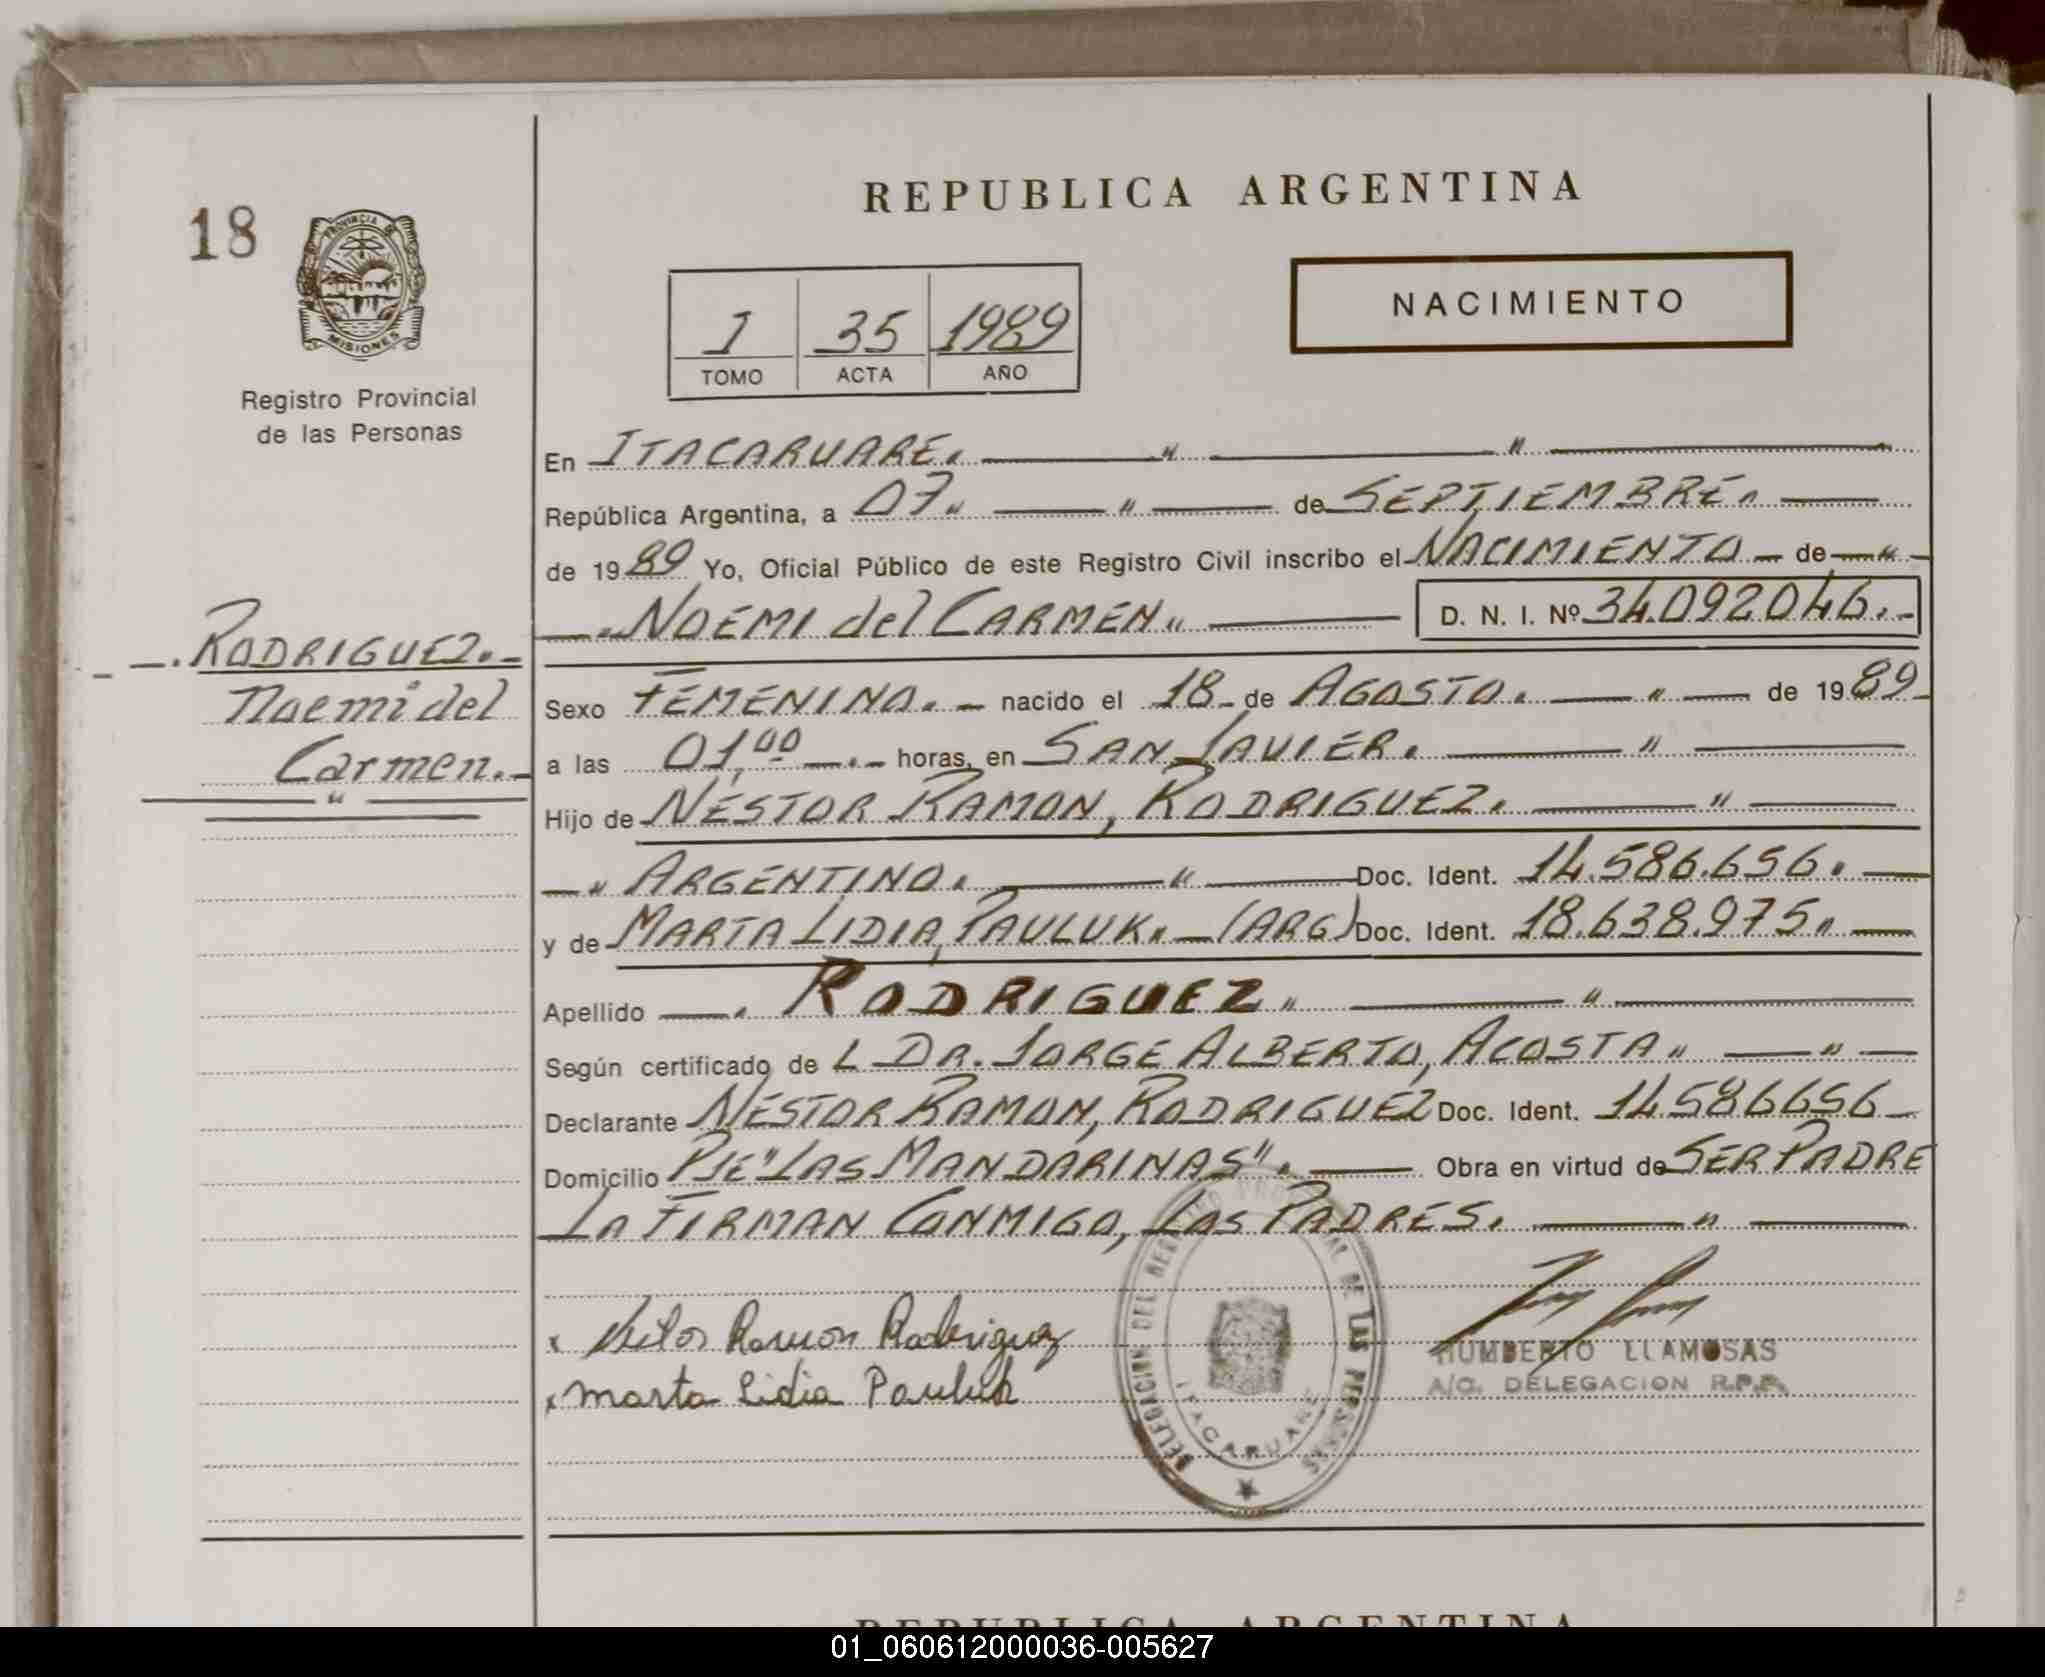 REPUBLICA ARGENTINA
18
PROVINCIA DE
MISIONES
Registro Provincial
de las Personas
NACIMIENTO
1 35 1989
TOMO ACTA AÑO
En ITACARUARE. — " — " —
República Argentina, a 07. — " — de SEPTIEMBRE. —
de 1989 Yo, Oficial Público de este Registro Civil inscribo el NACIMIENTO — de — " —
—. NOEMI del CARMEN. — D. N. I. Nº 34.092046. -
—. RODRIGUEZ. -
Noemi del
Carmen. -
— " —
Sexo FEMENINO. — nacido el 18 - de AGOSTO. — " — de 1989 -
a las 01,00 —. — horas, en SAN JAVIER. — " —
Hijo de NESTOR RAMON, RODRIGUEZ. — " —
— " ARGENTINO. — " — Doc. Ident. 14.586.656. —
y de MARTA LIDIA, PAULUK. — (ARG) Doc. Ident. 18.638.975. —
Apellido —. RODRIGUEZ " — " —
Según certificado de L DR. JORGE ALBERTO, ACOSTA " — " —
Declarante NESTOR RAMON, RODRIGUEZ Doc. Ident. 14.586656 -
Domicilio PJE "LAS MANDARINAS". — Obra en virtud de SER PADRE
LA FIRMAN CONMIGO, LOS PADRES. — " —
x Nestor Ramon Rodriguez
x Marta Lidia Pauluk
DELEGACION DEL REGISTRO PROVINCIAL DE LAS PERSONAS
ITACARUARE
HUMBERTO LLAMOSAS
A/C. DELEGACION R.P.P.
REPUBLICA ARGENTINA
01_060612000036-005627